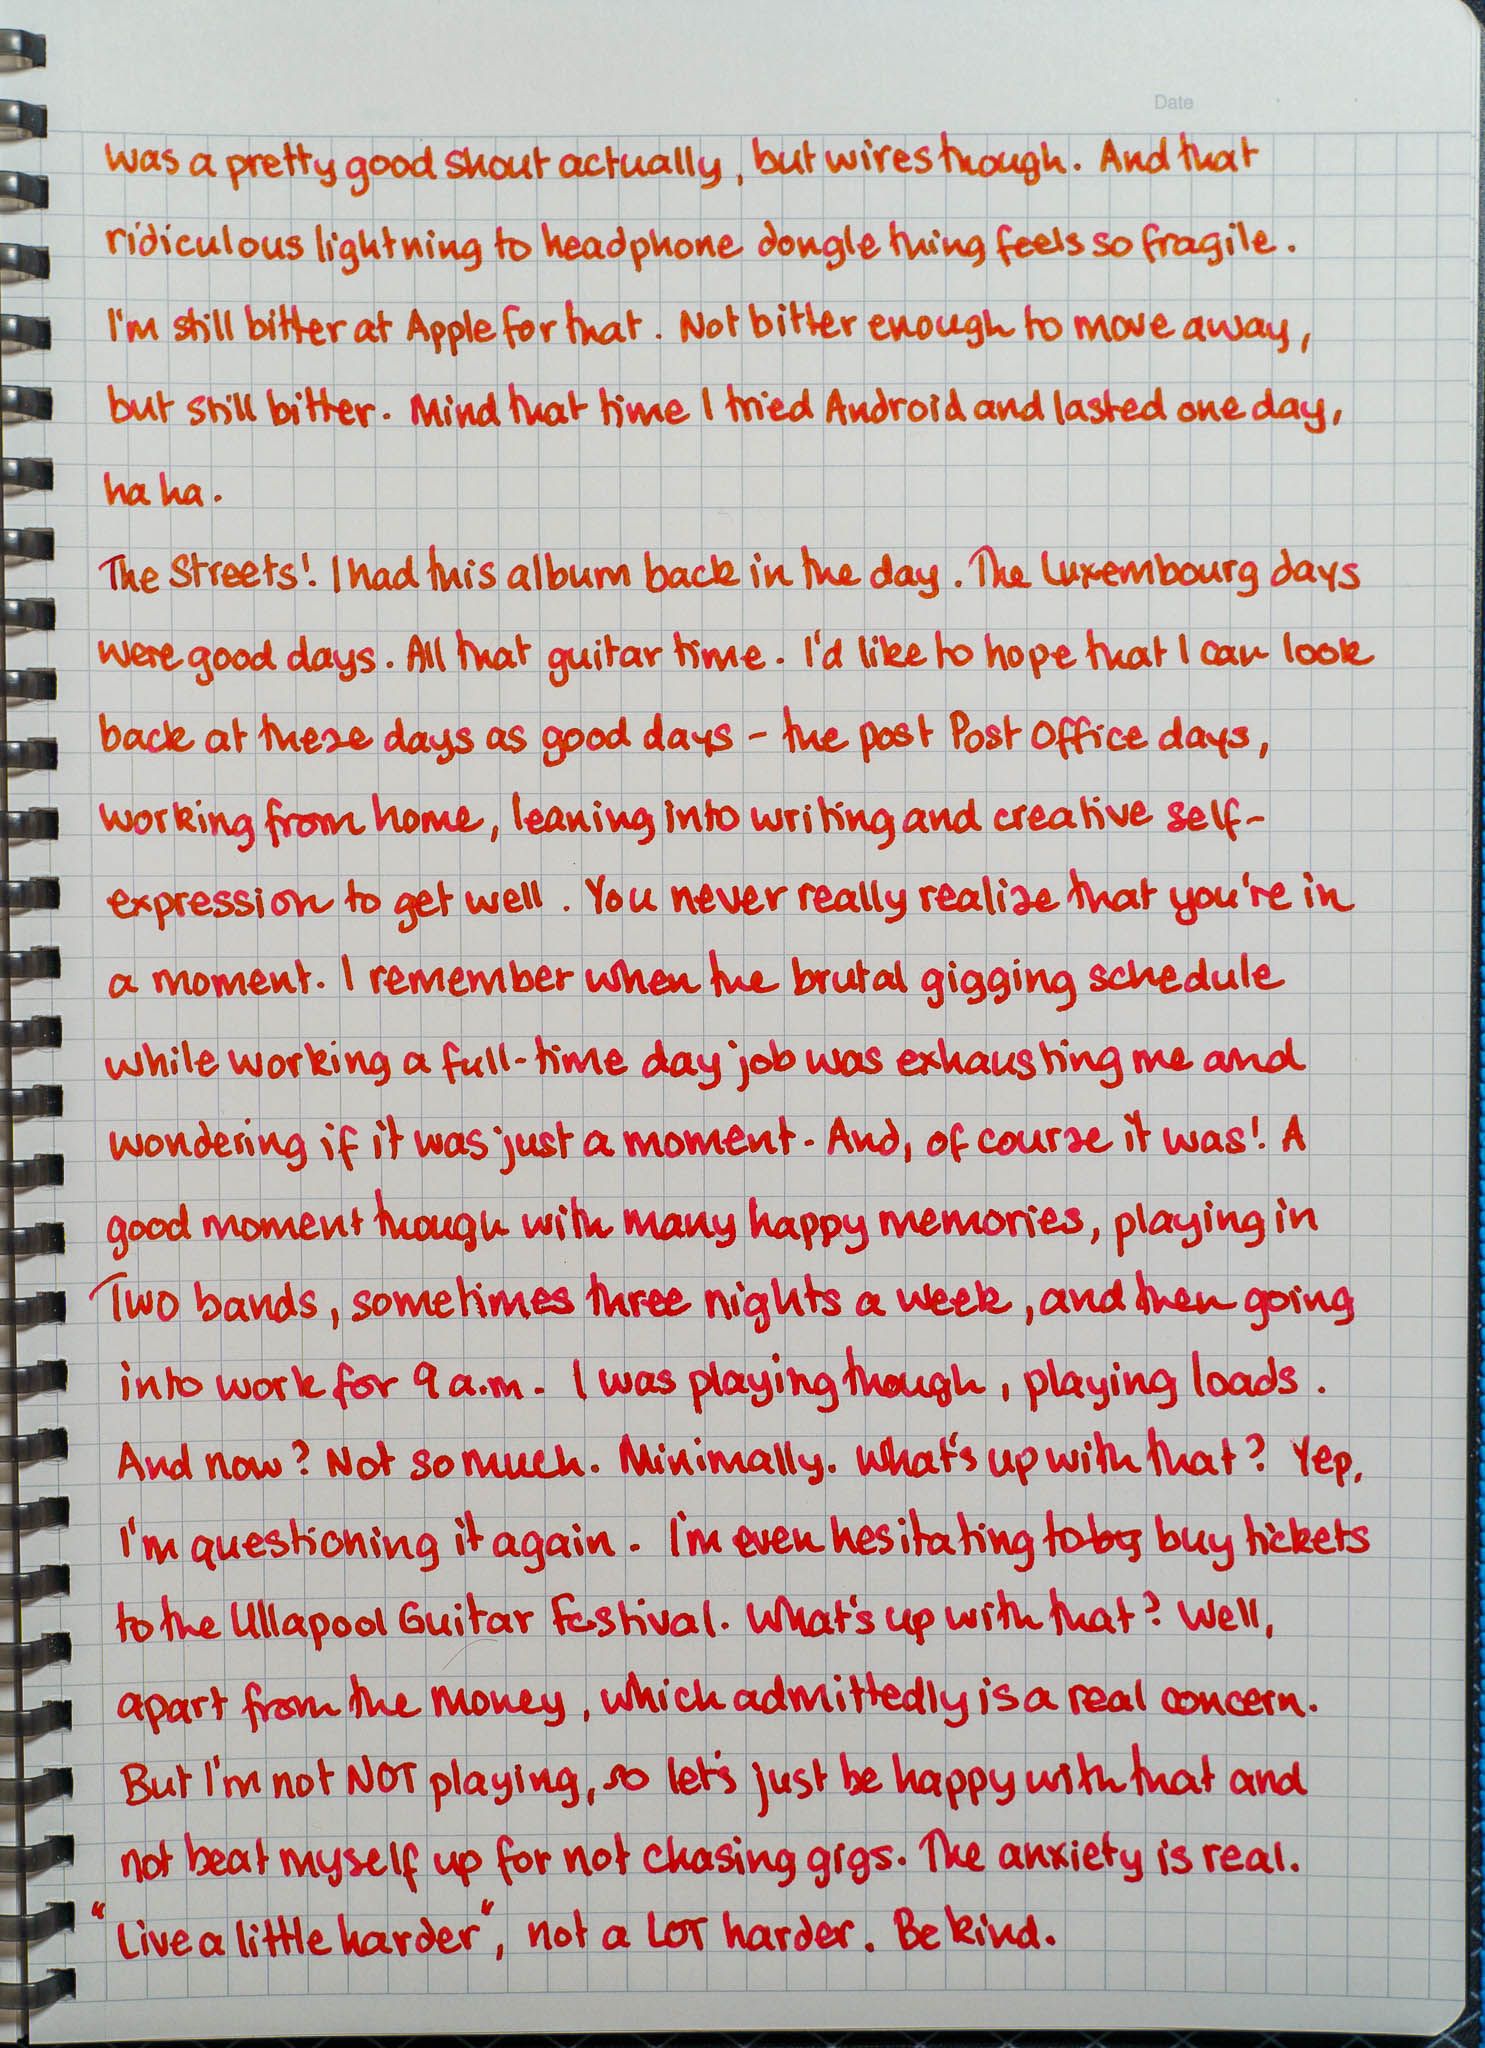 Date
was a pretty good shout actually, but wires though. And that
ridiculous lightning to headphone dongle thing feels so fragile.
I'm still bitter at Apple for that. Not bitter enough to move away,
but still bitter. Mind that time I tried Android and lasted one day,
ha ha.
The Streets! I had this album back in the day. The Luxembourg days
were good days. All that guitar time. I'd like to hope that I can look
back at these days as good days - the post Post Office days,
working from home, leaning into writing and creative self-
expression to get well. You never really realize that you're in
a moment. I remember when the brutal gigging schedule
while working a full-time day job was exhausting me and
wondering if it was just a moment. And, of course it was! A
good moment though with many happy memories, playing in
Two bands, sometimes three nights a week, and then going
into work for 9 a.m. I was playing though, playing loads.
And now? Not so much. Minimally. What's up with that? Yep,
I'm questioning it again. I'm even hesitating to by buy tickets
to the Ullapool Guitar Festival. What's up with that? Well,
apart from the money, which admittedly is a real concern.
But I'm not NOT playing, so let's just be happy with that and
not beat myself up for not chasing gigs. The anxiety is real.
"Live a little harder", not a LOT harder. Be kind.